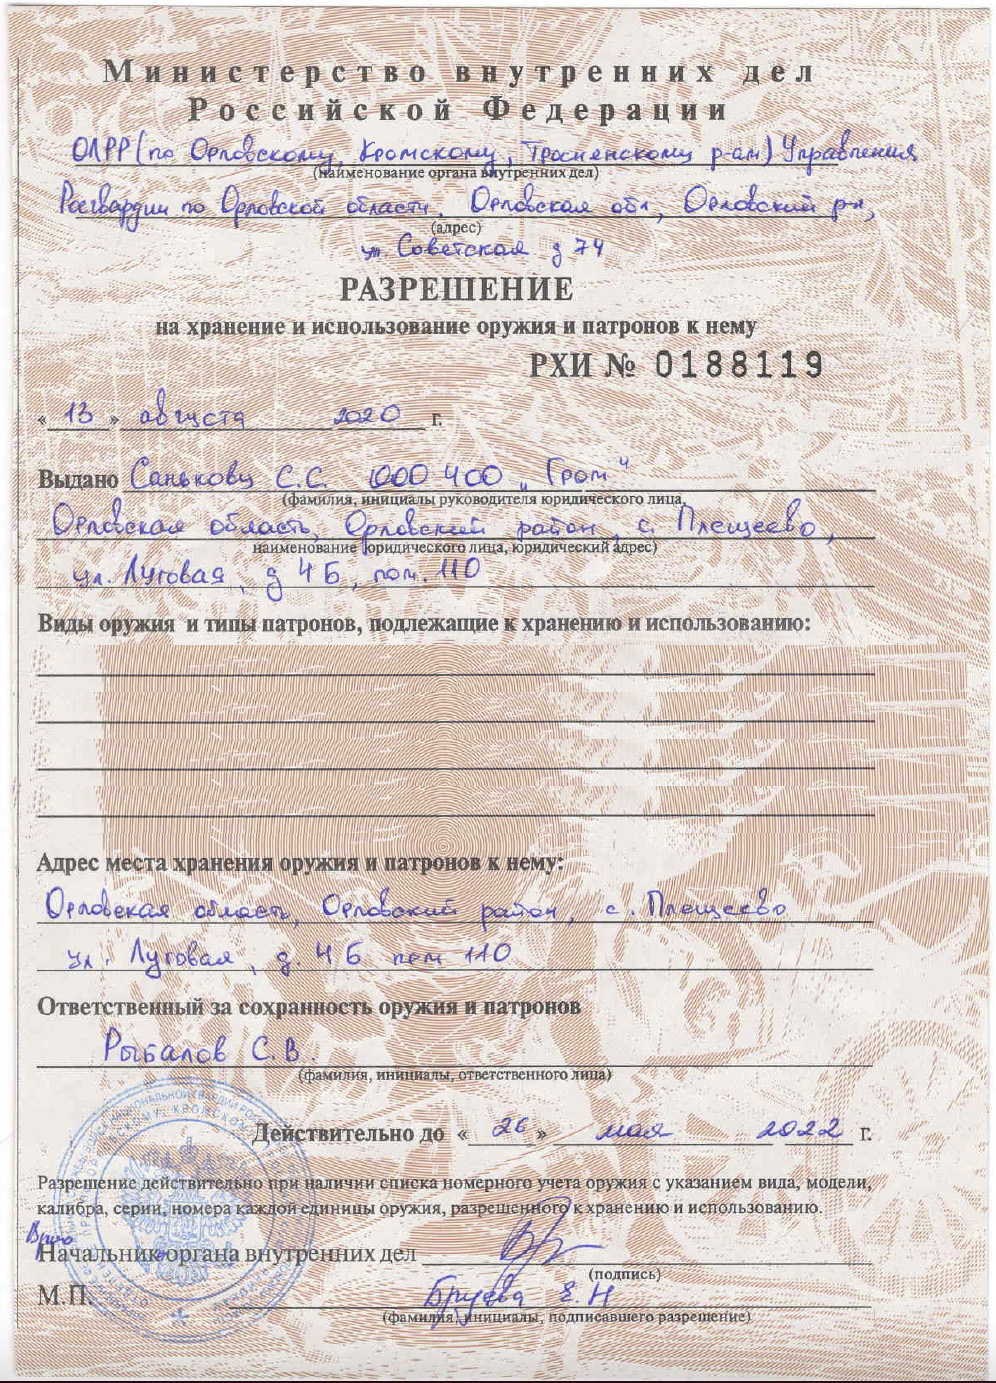 Министерство внутренних дел
Российской Федерации
ОЛРР (по Орловскому, Кромскому, Троснянскому р-ам) Управления
(наименование органа внутренних дел)
Росгвардии по Орловской области, Орловская обл, Орловский р-н,
(адрес)
ул Советская д 74
РАЗРЕШЕНИЕ
на хранение и использование оружия и патронов к нему
РХИ № 0188119
« 13 » августа 2020 г.
Выдано Санькову С.С. ООО ЧОО „Гром“
(фамилия, инициалы руководителя юридического лица,
Орловская область, Орловский район, с. Плещеево,
наименование юридического лица, юридический адрес)
ул. Луговая, д 4 Б, пом. 110
Виды оружия и типы патронов, подлежащие к хранению и использованию:
Адрес места хранения оружия и патронов к нему:
Орловская область, Орловский район, с. Плещеево
ул. Луговая, д. 4 Б пом 110
Ответственный за сохранность оружия и патронов
Рыбалов С.В.
(фамилия, инициалы, ответственного лица)
Действительно до « 26 » мая 2022 г.
Разрешение действительно при наличии списка номерного учета оружия с указанием вида, модели,
калибра, серии, номера каждой единицы оружия, разрешенного к хранению и использованию.
Врио
Начальник органа внутренних дел
(подпись)
М.П. Е.Н
(фамилия, инициалы, подписавшего разрешение)